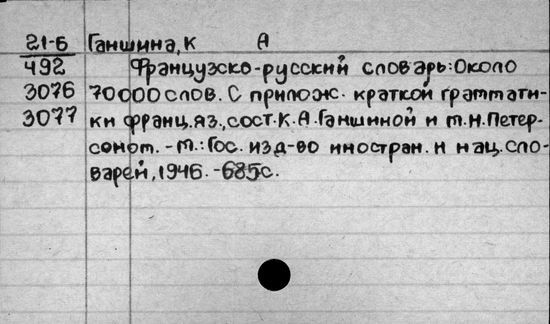 21-6 Ганшина, К А
492 Французско-русский словарь: Около
3076 70000 слов. С прилож. краткой граммати-
3077 ки франц. яз., сост. К. А. Ганшиной и М. Н. Петер-
соном. - М.: Гос. изд-во иностран. и нац. сло-
варей, 1946. - 685 с.